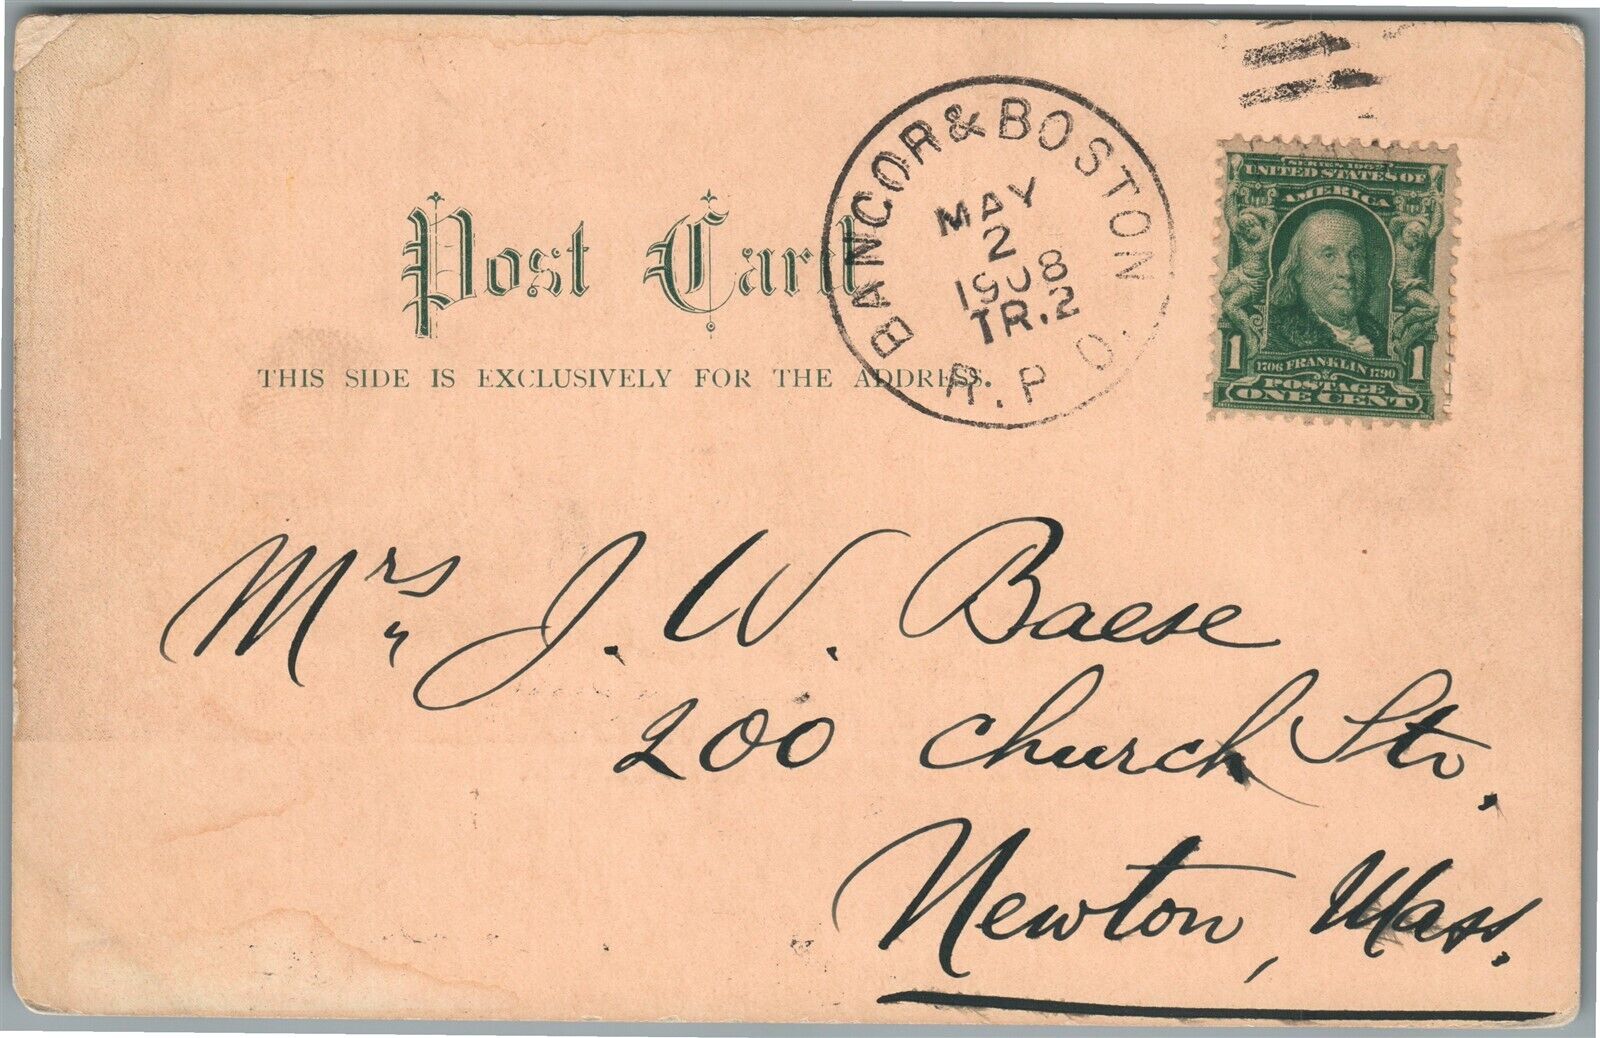 BANGOR & BOSTON
MAY
2
1908
TR.2
R.P.O.
SERIES 1902
UNITED STATES OF
AMERICA
1 1706 FRANKLIN 1790 1
POSTAGE
ONE CENT
Post Card
THIS SIDE IS EXCLUSIVELY FOR THE ADDRESS.
Mrs. J. W. Baese
200 Church St.,
Newton, Mass.